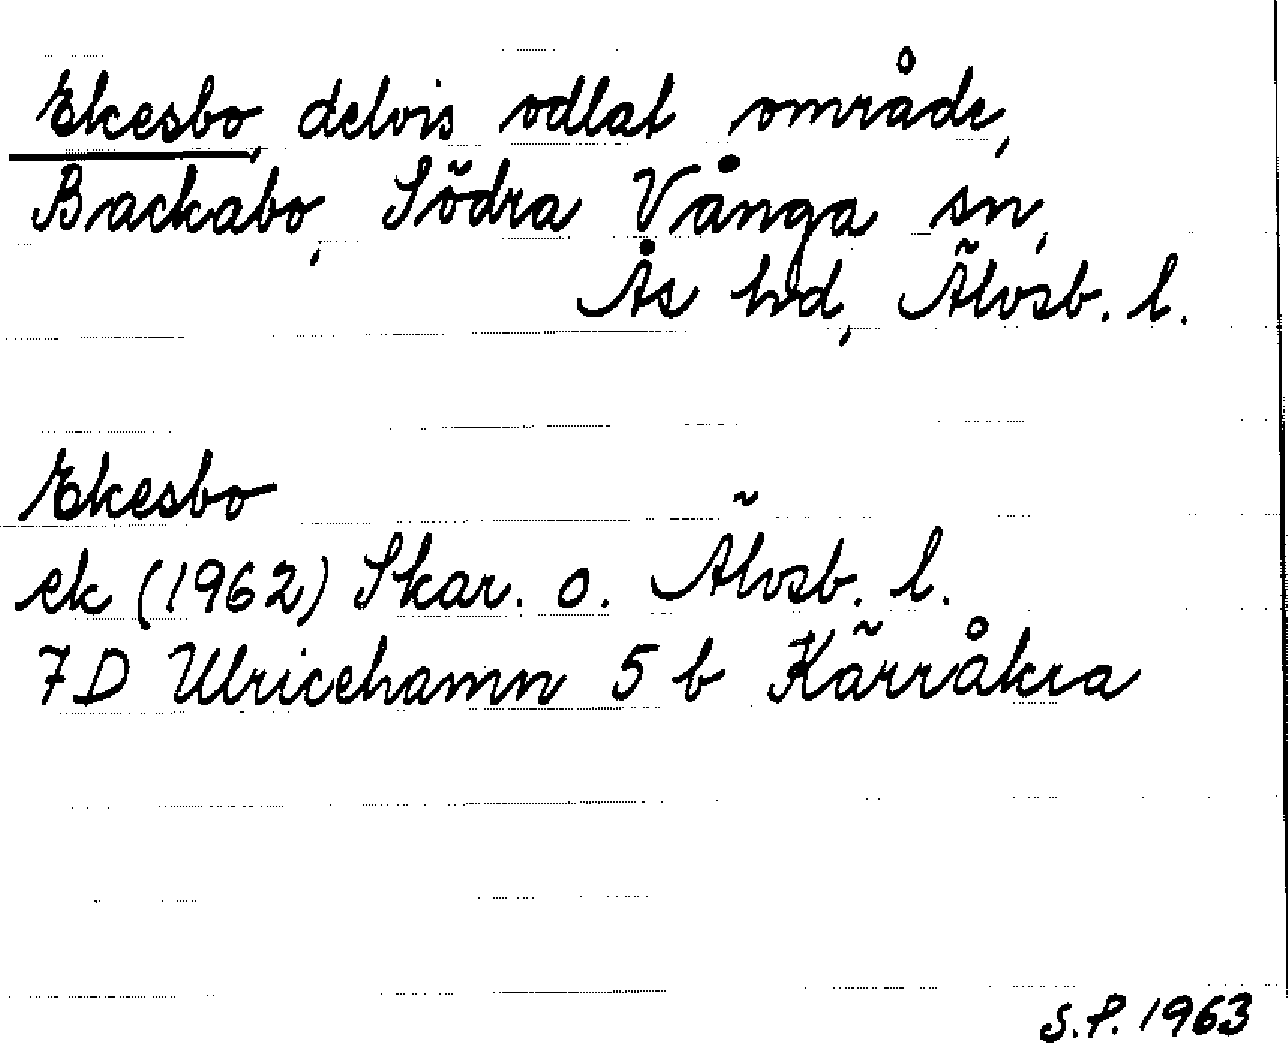 Ekesbo, delvis odlat område,
Backabo, Södra Vånga sn,
Ås hd, Älvsb. l.
Ekesbo
ek (1962) Skar. o. Älvsb. l.
7D Ulricehamn 5 b Kärråkra
S.P. 1963